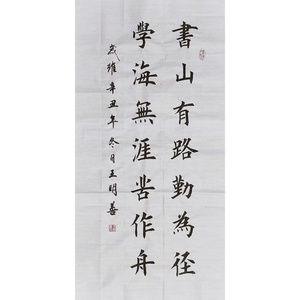 書山有路勤為径
學海無涯苦作舟
歲維辛丑年冬月王明善